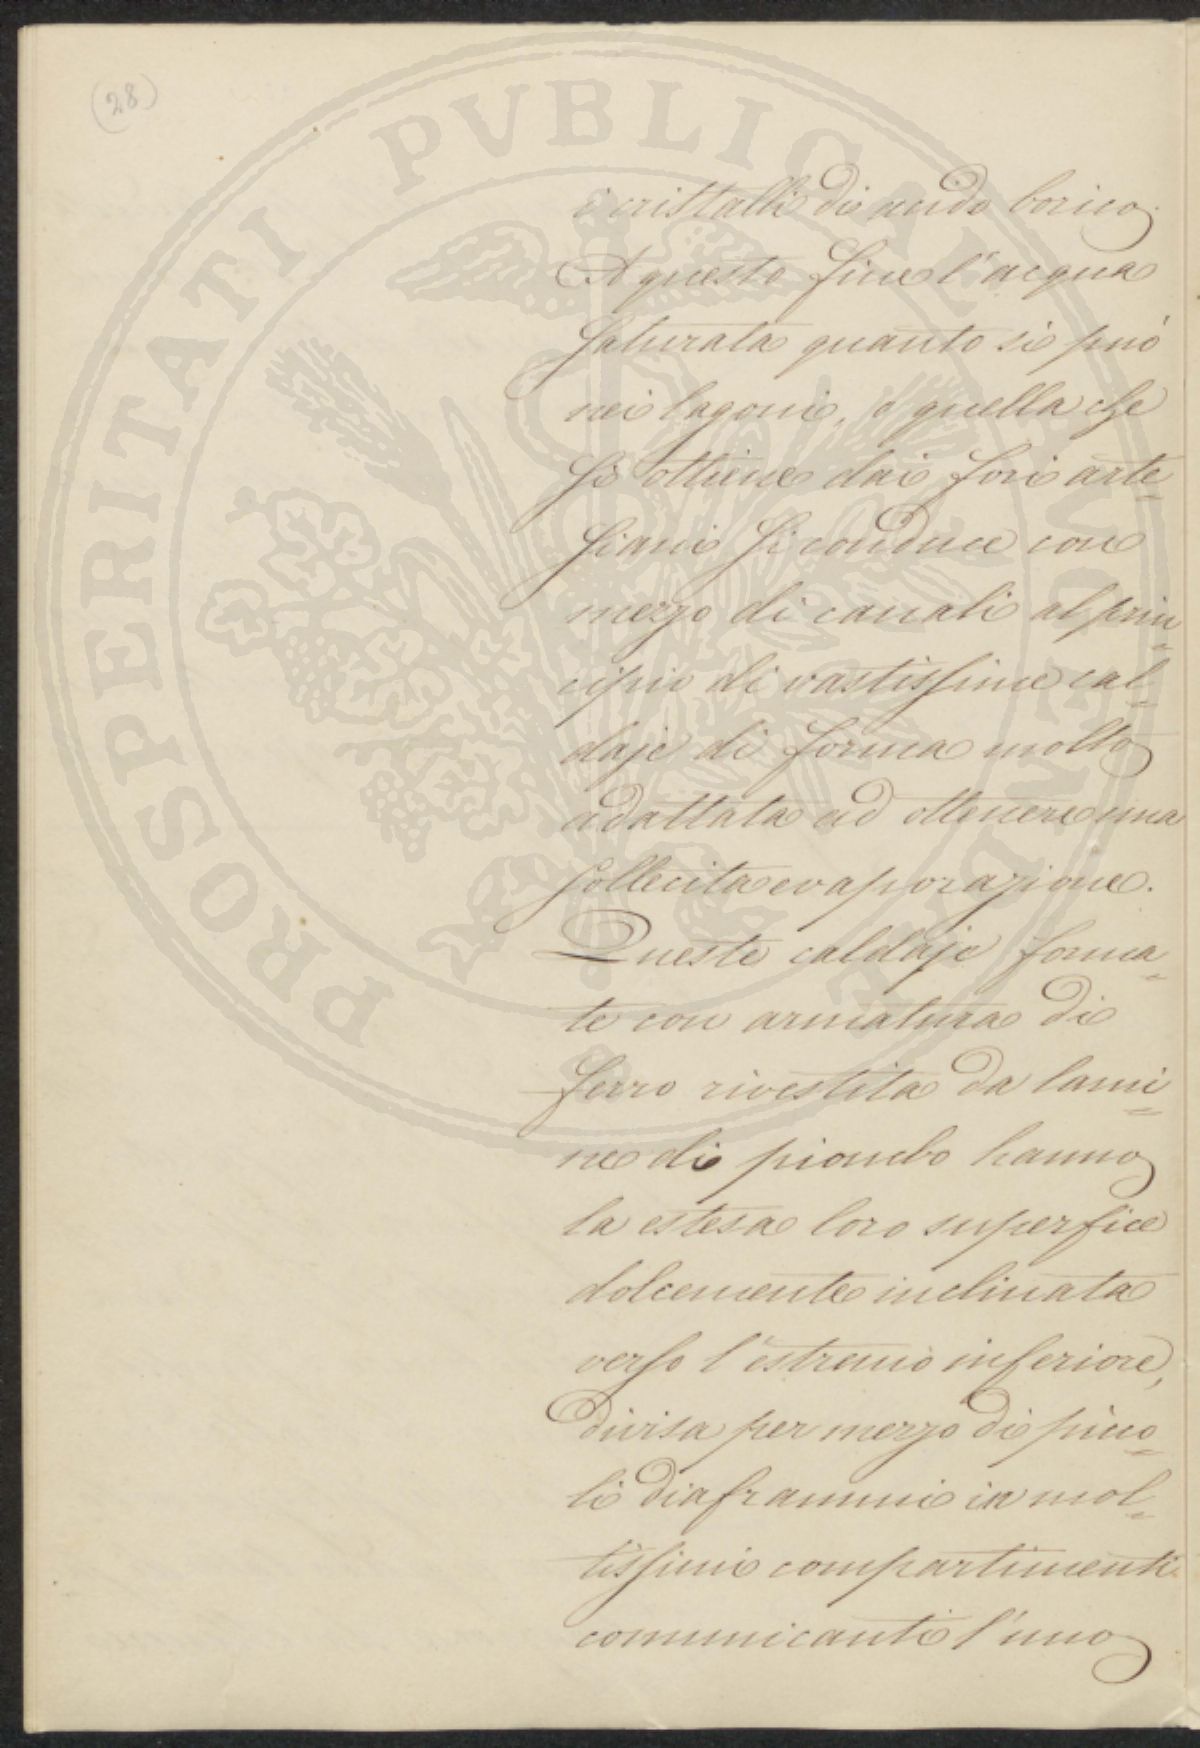 (28)
i cristalli di acido borico.
A questo fine l'acqua
saturata quanto si può
nei lagoni, o quella che
si ottiene dai fori arte=
siani si conduce con
mezzo di canali al prin=
cipio di vastissime cal=
daje di forma molto
adattata ad ottenere una
sollecita evaporazione.
Queste caldaje forma=
te con armatura di
ferro rivestita da lami=
ne di piombo hanno
la estesa loro superfice
dolcemente inclinata
verso l'estremo inferiore,
divisa per mezzo di picco=
li diaframmi in mol=
tissimi compartimenti
comunicanti l'uno
PROSPERITATI PVBLICAE AVGENDAE